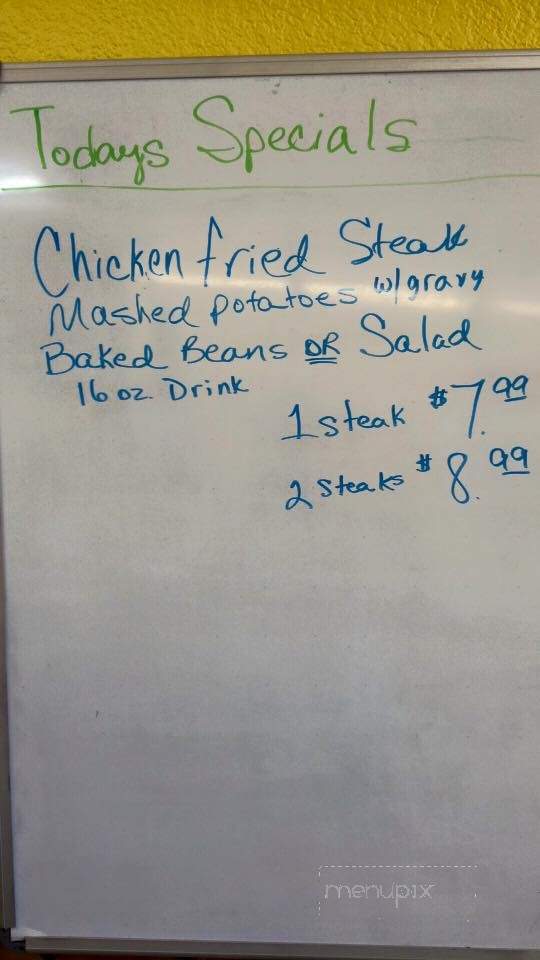 Todays Specials
Chicken fried Steak
Mashed potatoes w/gravy
Baked Beans OR Salad
16 oz. Drink
1 steak $7.99
2 steaks $8.99
menupix